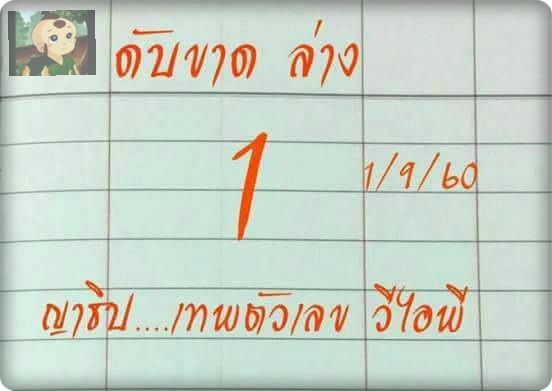 ดับขาด ล่าง
1
1/9/60
ญาธิป....เทพตัวเลข วีไอพี